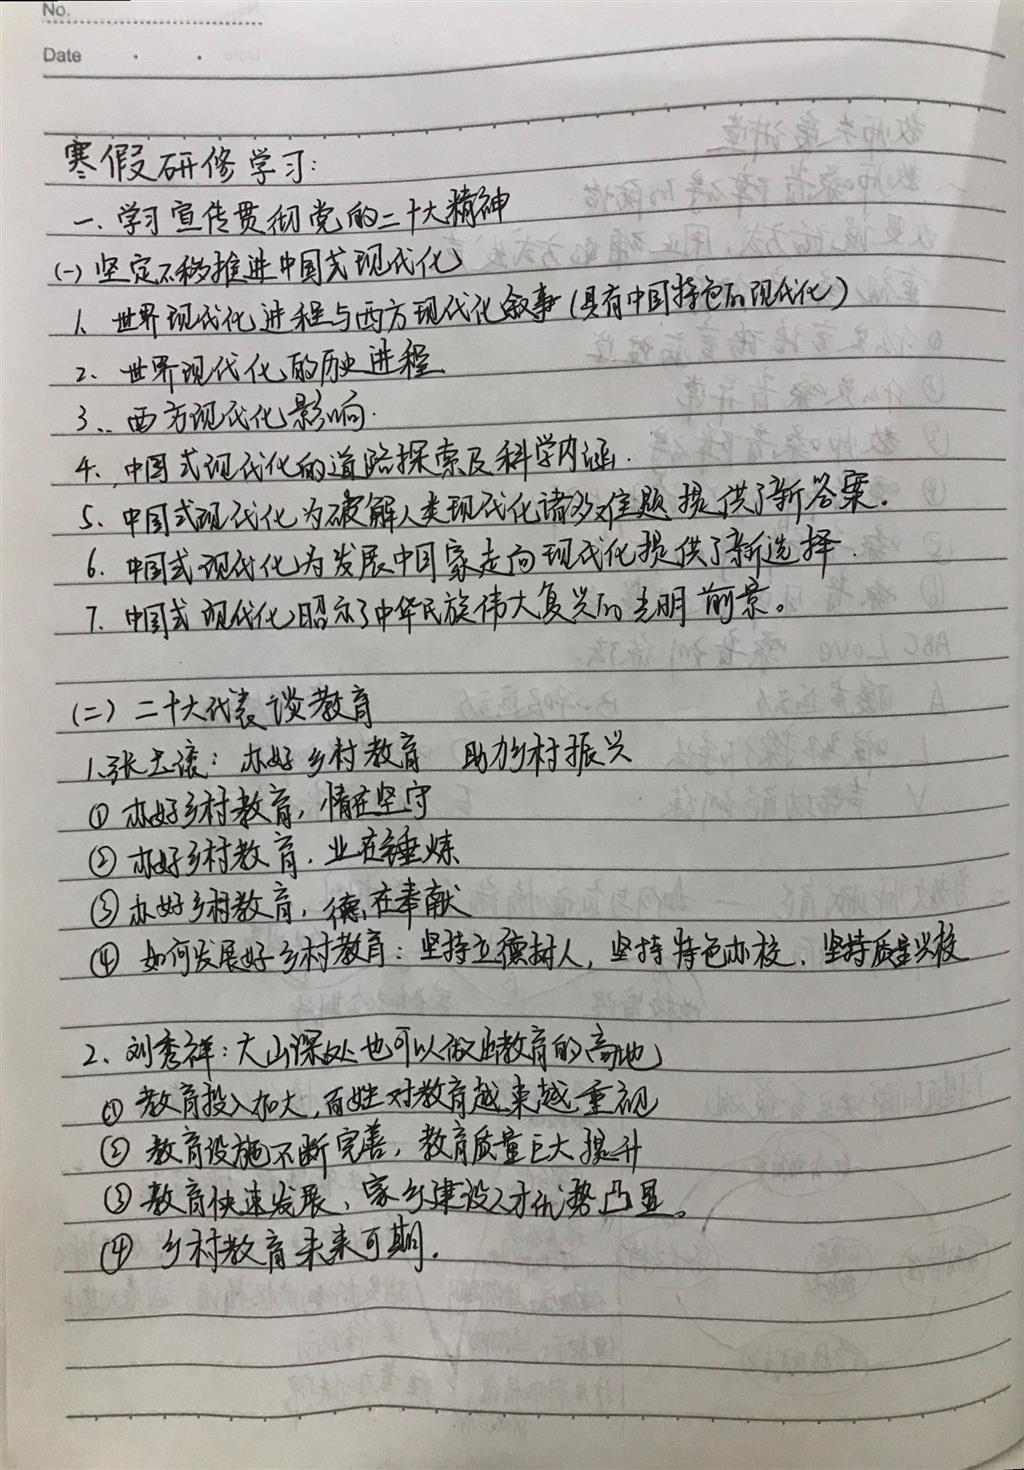 No.
Date
寒假研修学习:
一、学习宣传贯彻党的二十大精神
(一) 坚定不移推进中国式现代化
1、世界现代化进程与西方现代化叙事(具有中国特色的现代化)
2、世界现代化的历史进程
3、西方现代化影响.
4、中国式现代化的道路探索及科学内涵.
5、中国式现代化为破解人类现代化诸多难题提供了新答案.
6、中国式现代化为发展中国家走向现代化提供了新选择.
7、中国式现代化昭示了中华民族伟大复兴的光明前景。
(二) 二十大代表谈教育
1、张 : 办好乡村教育 助力乡村振兴
① 办好乡村教育, 情在坚守
② 办好乡村教育, 业在锤炼
③ 办好乡村教育, 德在奉献
④ 如何发展好乡村教育: 坚持立德树人, 坚持特色办校、坚持质量兴校
2、刘秀祥: 大山深处也可以做出教育的高地
① 教育投入加大, 百姓对教育越来越重视
② 教育设施不断完善, 教育质量巨大提升
③ 教育快速发展、家乡建设人才优势凸显。
④ 乡村教育未来可期.